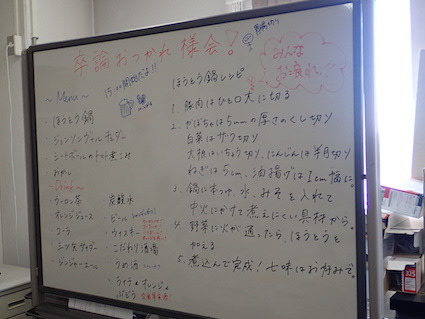 卒論おつかれ様会!
みんな
お疲れ!
15:00開始だよ!!
~Menu~
ほうとう鍋
ミートボールのトマト煮こみ
おかし
~Drink~
ウーロン茶
オレンジジュース
コーラ
三ツ矢サイダー
ジンジャーエール
炭酸水
ビール
ウイスキー
こだわり酒場
うめ酒
ライチ&オレンジ&
ぶどう
ほうとう鍋レシピ
1. 豚肉はひと口大に切る
2. かぼちゃは5mmの厚さのくし切り
白菜はザク切り
大根はいちょう切り、にんじんは半月切り
ねぎは5cm、油揚げは1cm幅に。
3. 鍋に本つゆ、水、みそを入れて
中火にかけて煮えにくい具材から。
4. 野菜に火が通ったら、ほうとうを
加える
5. 煮込んで完成!七味はお好みで。